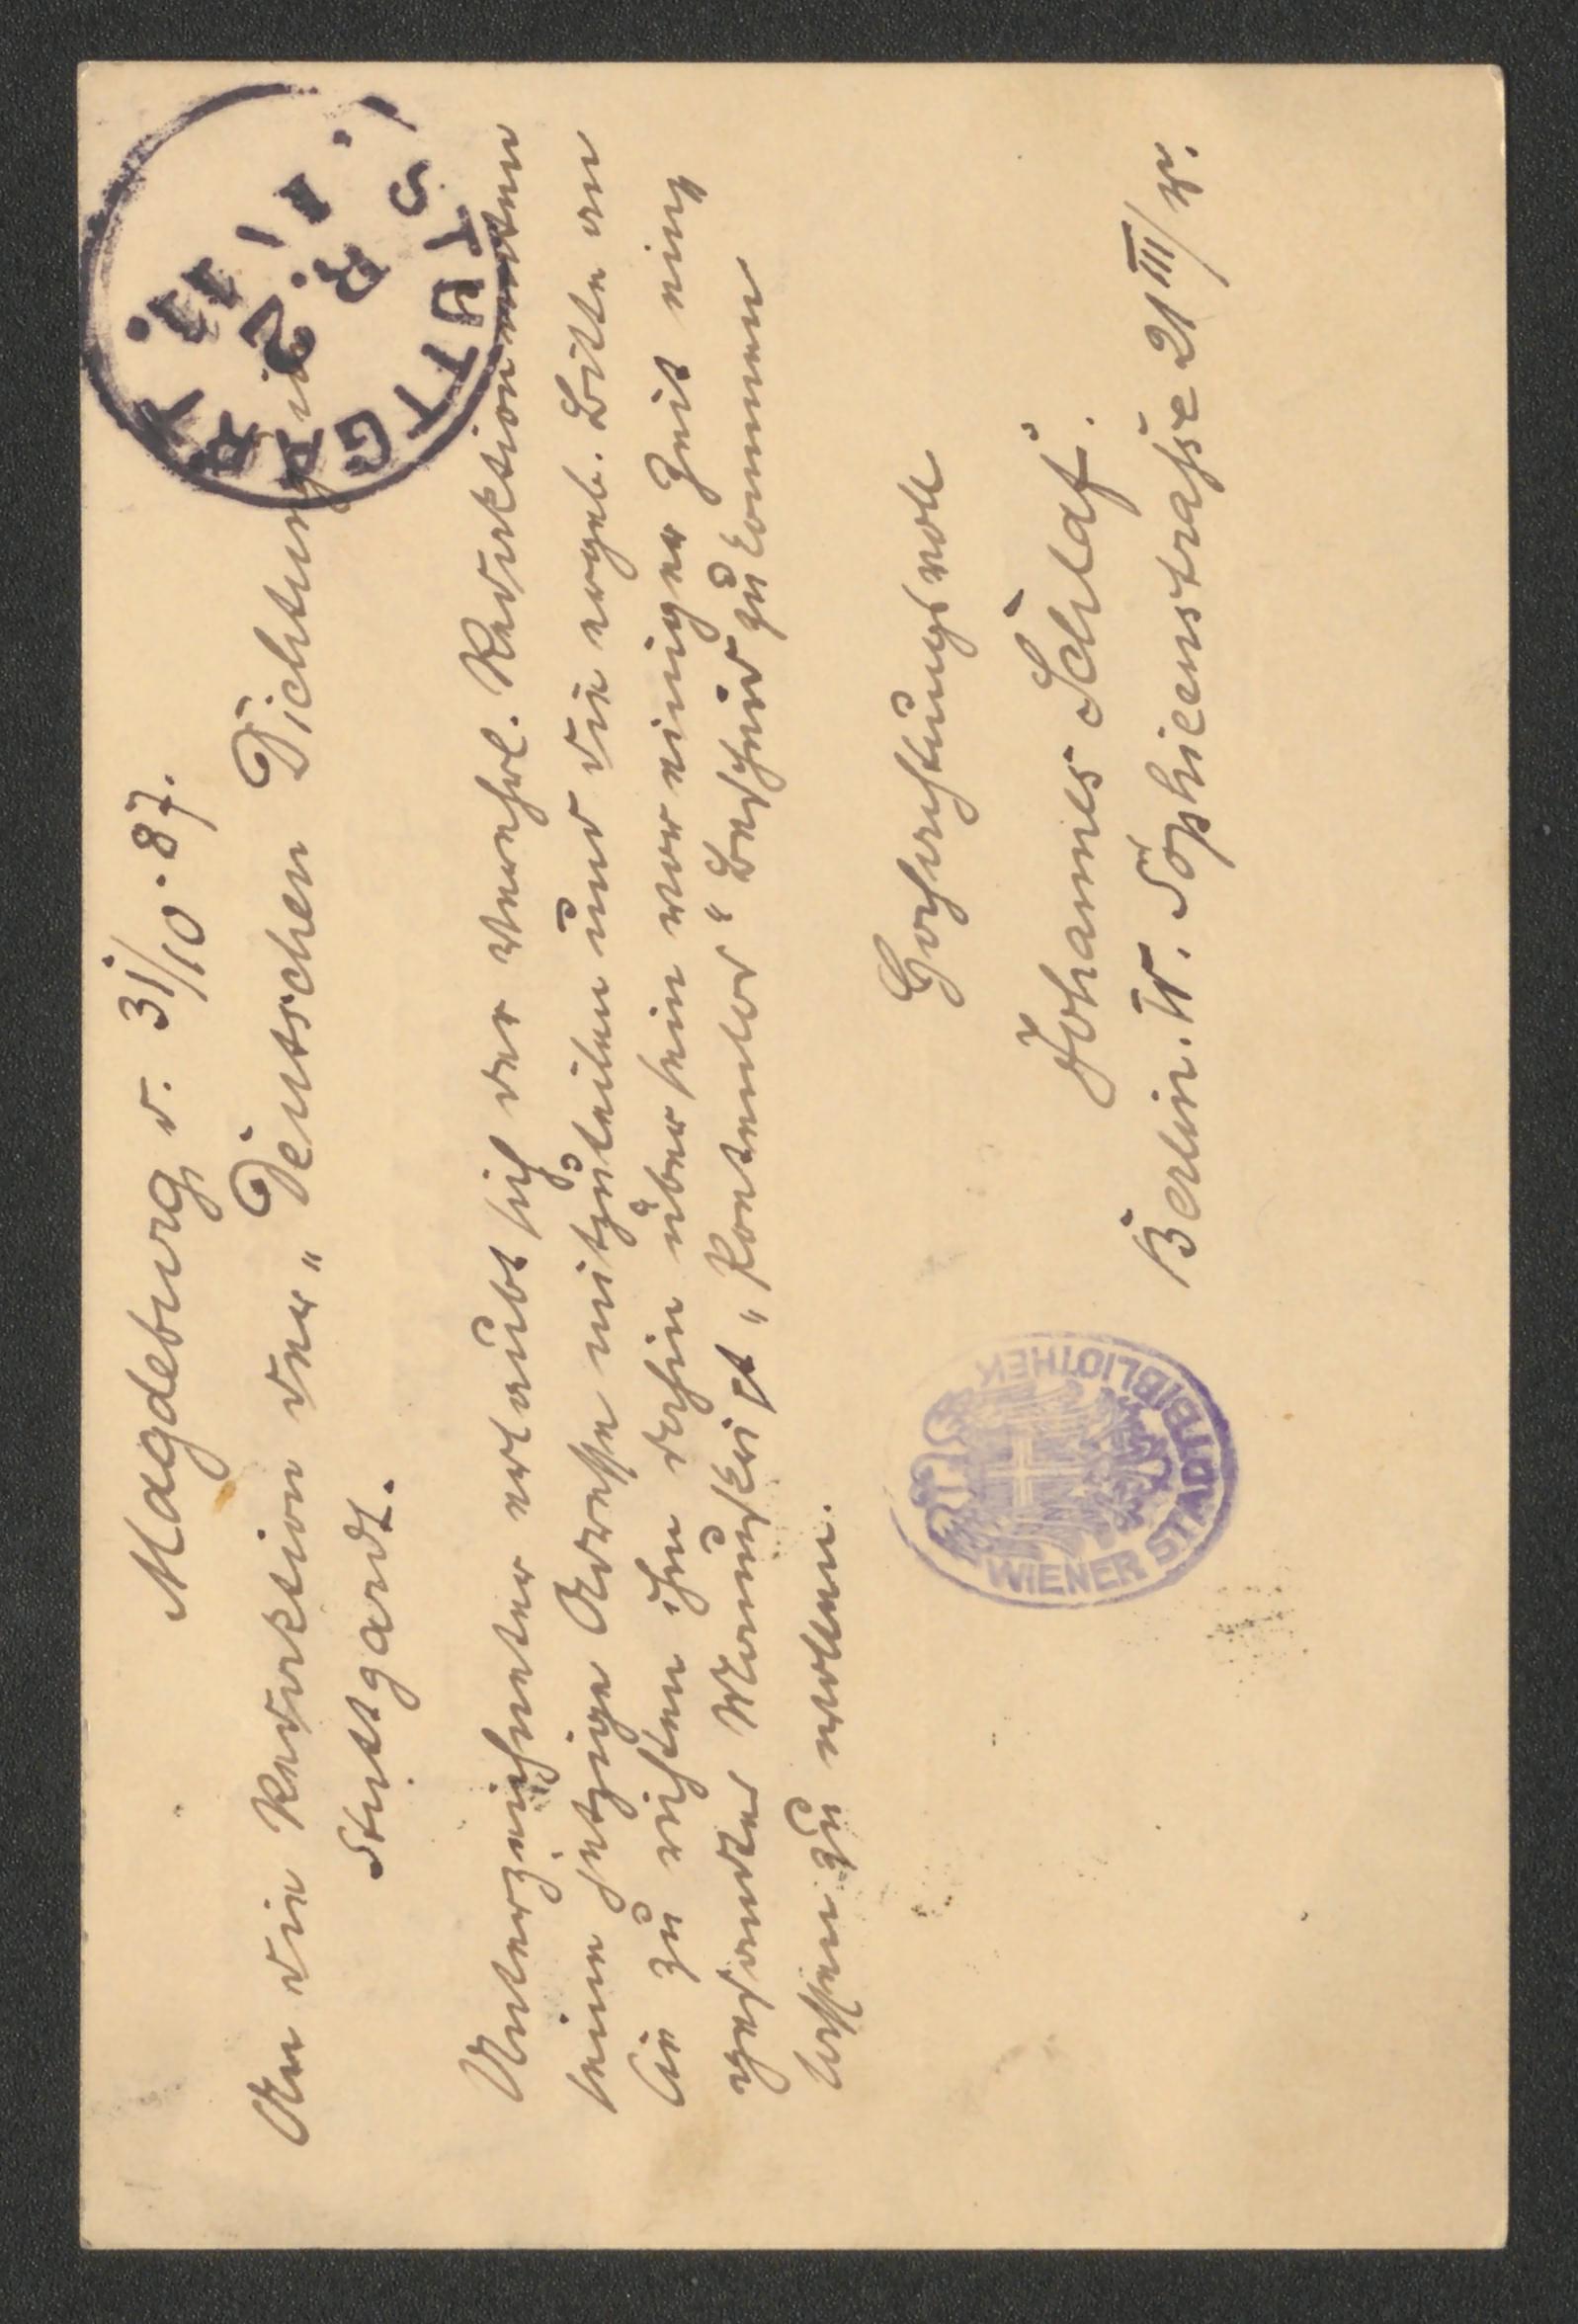 Magdeburg, d. 31/10. 87.
An die Redaktion der „Deutschen Dichtung“ in
Stuttgardt.
Unterzeichneter erlaubt sich der verehrl. Redaktion
seine jetzige Adresse mitzuteilen und die ergeb. Bitte an
Sie zu richten ihm dahin über sein vor einiger Zeit ein-
gesandtes Manuskript „ “ Bescheid zukommen
lassen zu wollen.
Hochachtungsvoll
Johannes Schlaf.
Berlin. W. Sophieenstrasse 21 III/ r.
STUTTGART I.
R
2
1/11
11.
WIENER STADTBIBLIOTHEK